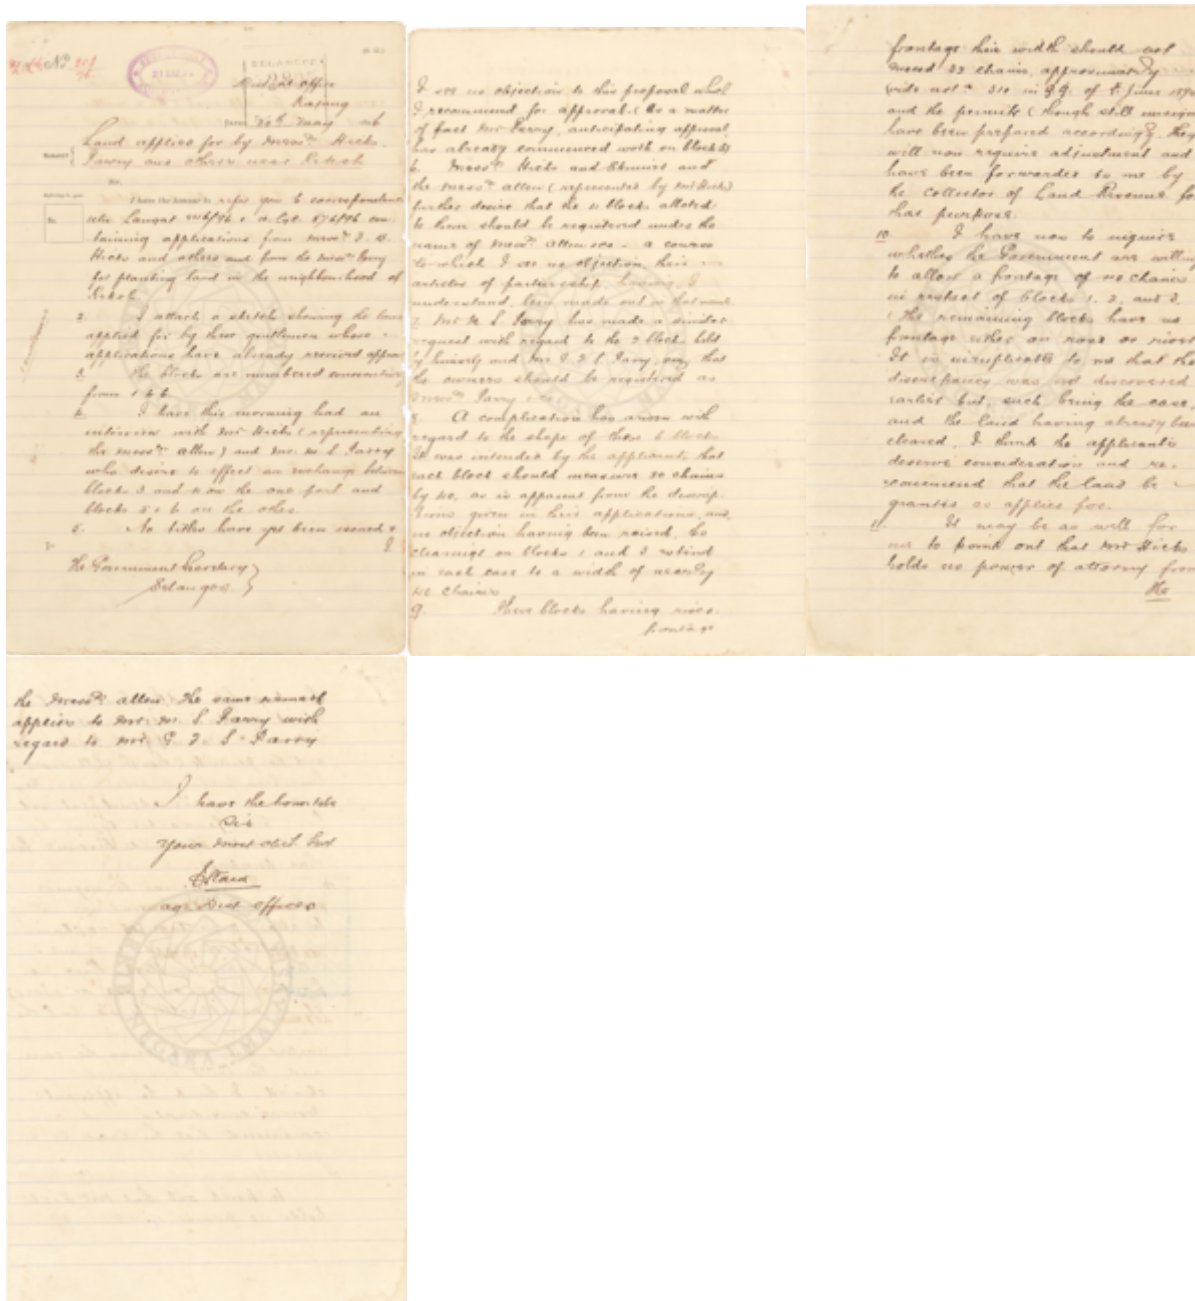 No.
SELANGOR
District Office
Kajang
20th May
Land applied for by Messrs Hicks,
Parry and others near Reko
I have the honour to refer you to correspondence
Langat
containing applications from Messrs
Hicks and others and from the Messrs Parry
for planting land in the neighbourhood of
Reko
2. I attach a sketch showing the land
applied for by these gentlemen whose
applications have already received approval
3. The blocks are numbered consecutively
from 1 to 6
4. I have this morning had an
interview with Mr Hicks (representing
the Messrs Allen) and Mr. M. S. Parry
who desire to effect an exchange between
blocks 3 and 4 on the one part and
blocks 5 & 6 on the other
5. No titles have yet been issued &
I
The Government Secretary
Selangor
I see no objection to this proposal which
I recommend for approval. (As a matter
of fact Mr Parry, anticipating approval,
has already commenced work on block
6. Messrs Hicks and and
the Messrs Allen (represented by Mr Hicks)
further desire that the blocks allotted
to them should be registered under the
name of Messrs Allen - a course
to which I see no objection their
articles of partnership, having, I
understand, been made out in that
7. Mr M. S. Parry has made a similar
request with regard to the 2 blocks held
by himself and Mr Parry, that
the owners should be registered as
Messrs Parry
8. A complication has arisen with
regard to the shape of these 6 blocks
It was intended by the applicants that
each block should measure 80 chains
by 40, as is apparent from the descrip-
tions given in their applications, and,
no objection having been raised, the
clearings on blocks 1 and 3 extend
in each case to a width of nearly
40 chains
9. These blocks having river
frontage
frontage their width should not
exceed chains, approximately
vide not n 310 in G.G. of 5 June
and the permits (though still unsigned)
have been prepared accordingly. They
will now require adjustment and
have been forwarded to me by
the Collector of Land Revenue for
this purpose.
10. I have now to inquire
whether the Government are willing
to allow a frontage of 40 chains
in respect of blocks 1, 2, and 3.
(The remaining blocks have no
frontage either on road or river)
It is inexplicable to me that the
discrepancy was not discovered
earlier but, such being the case,
and the land having already been
cleared, I think the applicants
deserve consideration and re-
commend that the land be
granted as applied for.
11. It may be as well for
me to point out that Mr Hicks
holds no power of attorney from
the
the Messrs Allen. The same remark
applies to Mr. M. S. Parry with
regard to Mr. Parry
I have the honour to be
Sir
Your most obed Serv
Actg Dist Officer